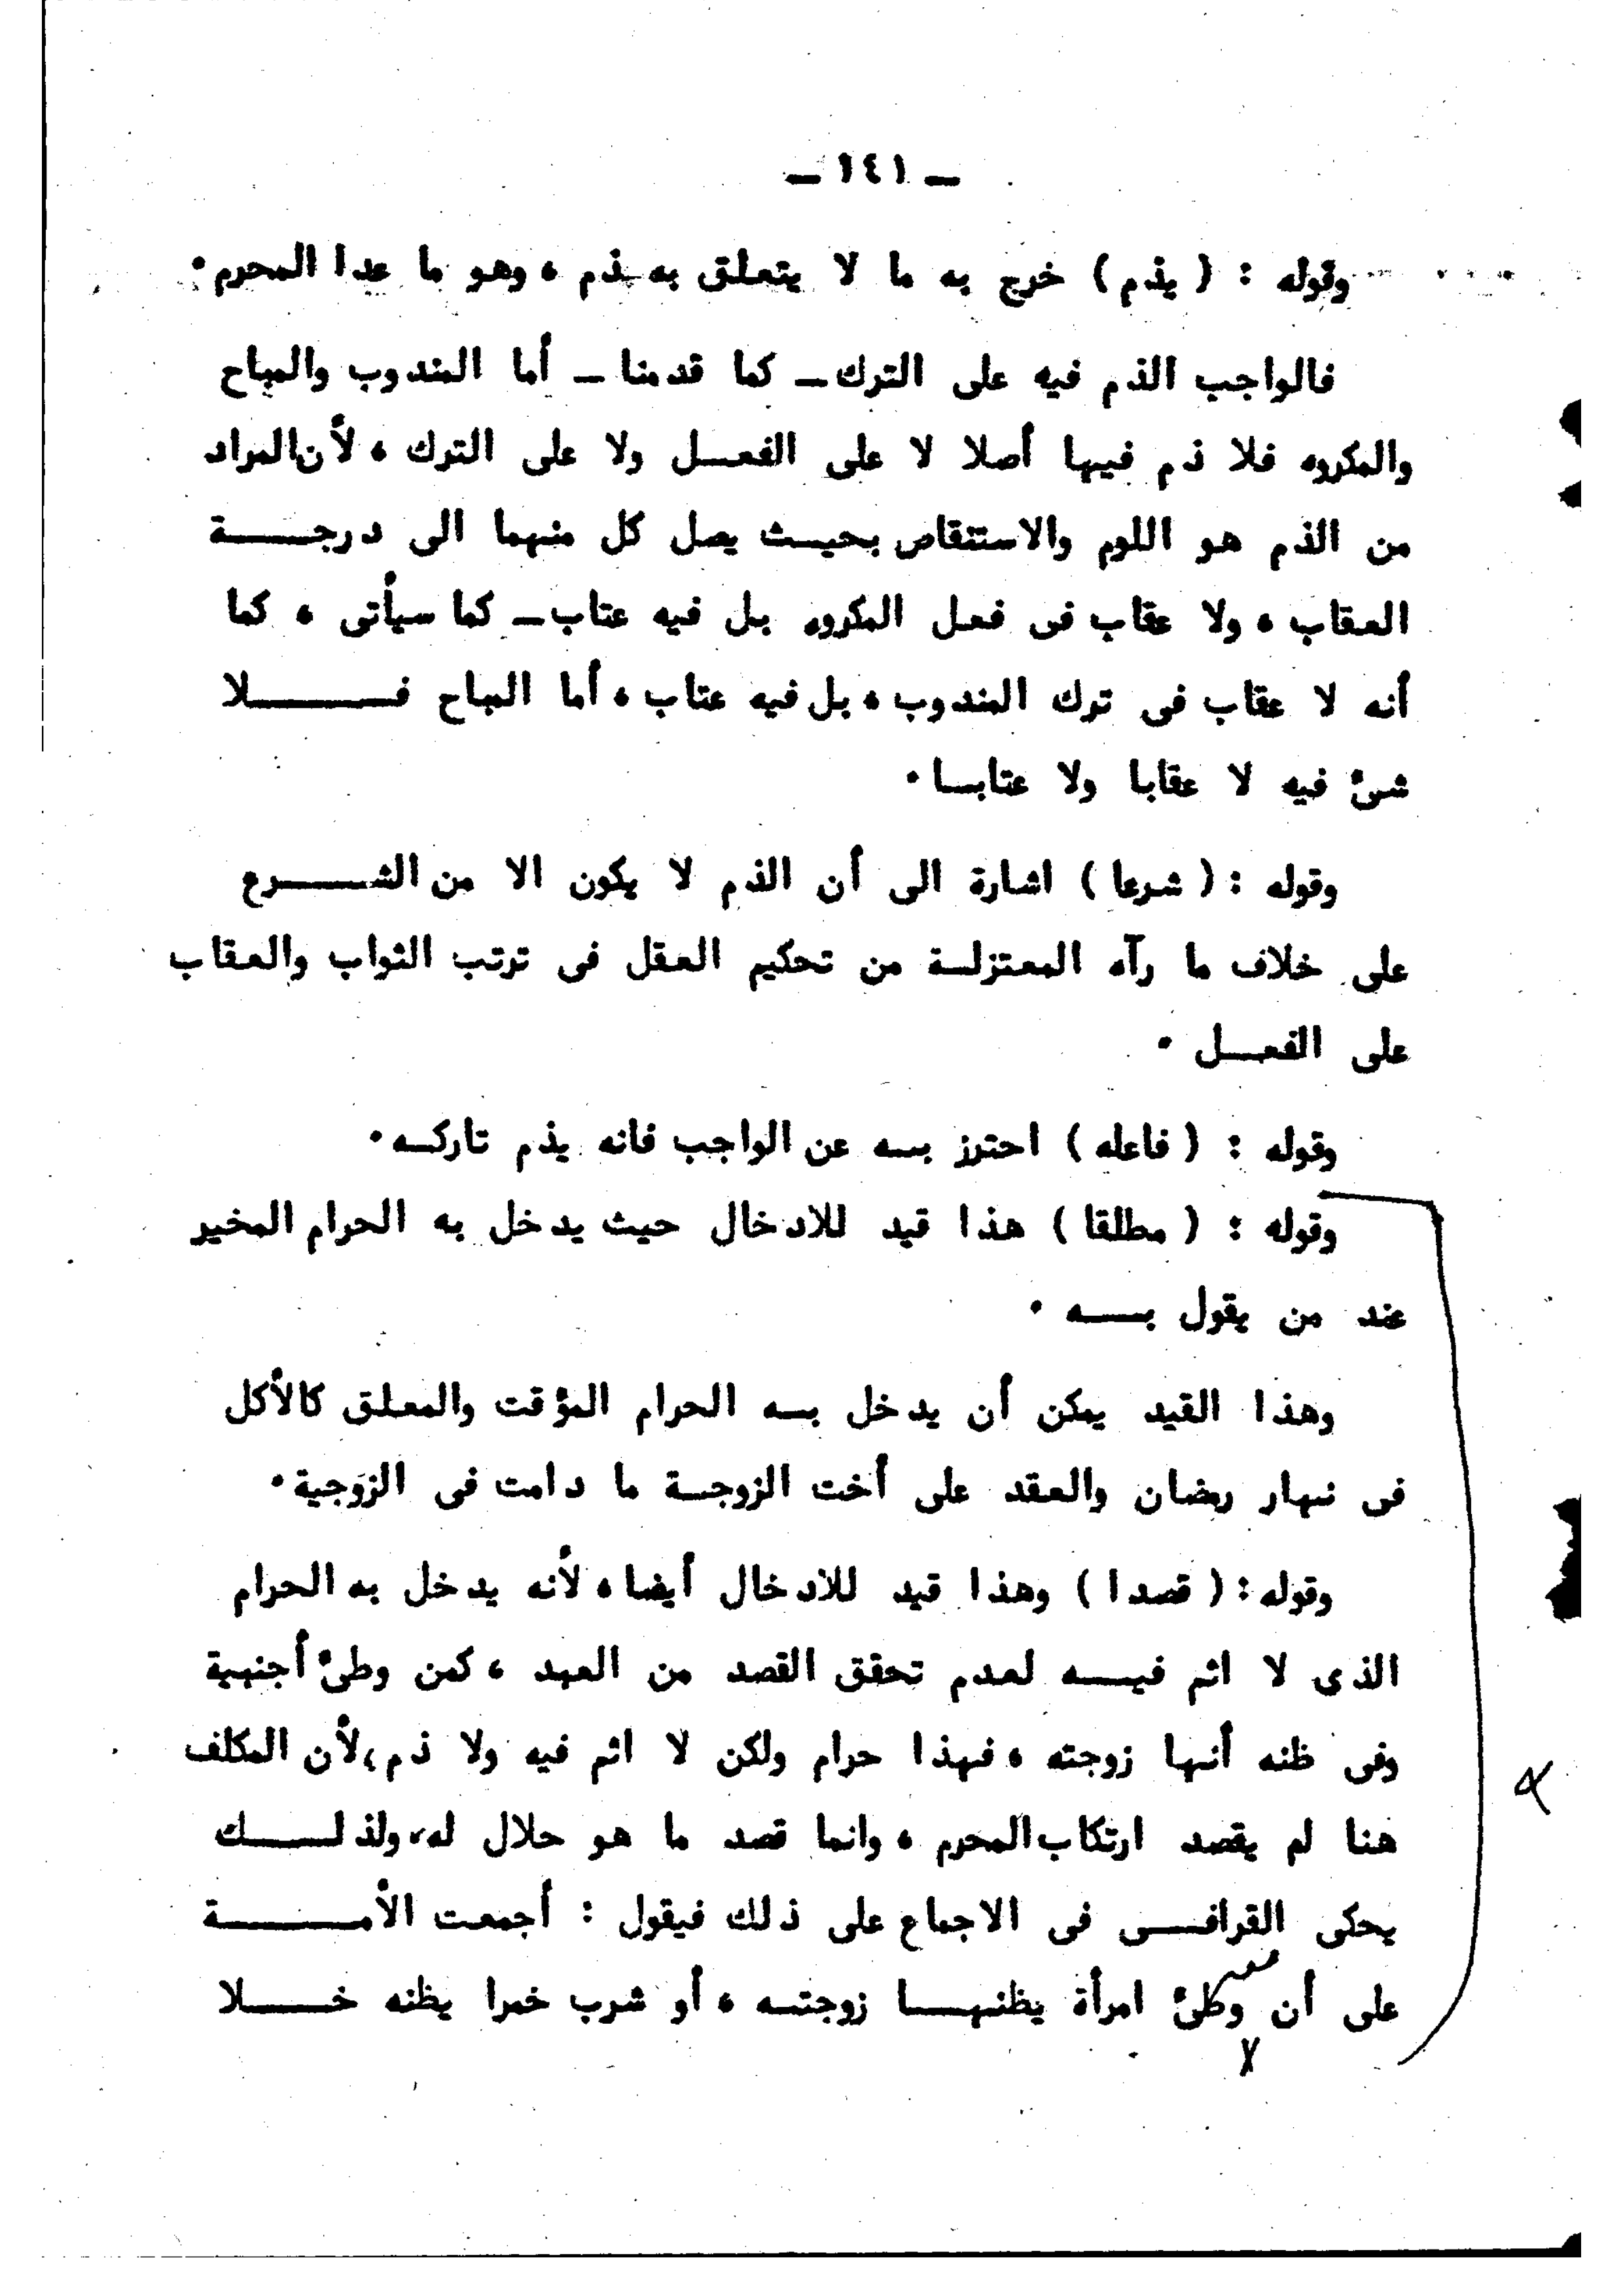 ـ ١٤١ ـ
وقوله : ( يذم ) خرج به ما لا يتعلق به ذم ، وهو ما عدا المحرم .
فالواجب الذم فيه على الترك ـ كما قدمنا ـ أما المندوب والمباح
والمكروه فلا ذم فيها أصلا لا على الفعل ولا على الترك ، لأن المراد
من الذم هو اللوم والاستنقاص بحيث يصل كل منهما الى درجة
العقاب ، ولا عقاب فى فعل المكروه بل فيه عتاب ـ كما سيأتى ، كما
أنه لا عقاب فى ترك المندوب ، بل فيه عتاب ، أما المباح فلا
شئ فيه لا عقابا ولا عتابا .
وقوله : ( شرعا ) اشارة الى أن الذم لا يكون الا من الشرع
على خلاف ما رآه المعتزلة من تحكيم العقل فى ترتب الثواب والعقاب
على الفعل .
وقوله : ( فاعله ) احترز به عن الواجب فانه يذم تاركه .
وقوله : ( مطلقا ) هذا قيد للادخال حيث يدخل به الحرام المخير
عند من يقول به .
وهذا القيد يمكن أن يدخل به الحرام المؤقت والمعلق كالأكل
فى نهار رمضان والعقد على أخت الزوجة ما دامت فى الزوجية .
وقوله : ( قصدا ) وهذا قيد للادخال أيضا ، لأنه يدخل به الحرام
الذى لا اثم فيه لعدم تحقق القصد من العبد ، كمن وطئ أجنبية
وفى ظنه أنها زوجته ، فهذا حرام ولكن لا اثم فيه ولا ذم ، لأن المكلف
هنا لم يقصد ارتكاب المحرم ، وانما قصد ما هو حلال له ، ولذلك
يحكى القرافى فى الاجماع على ذلك فيقول : أجمعت الأمة
على أن وطئ امرأة يظنها زوجته ، أو شرب خمرا يظنه خلا